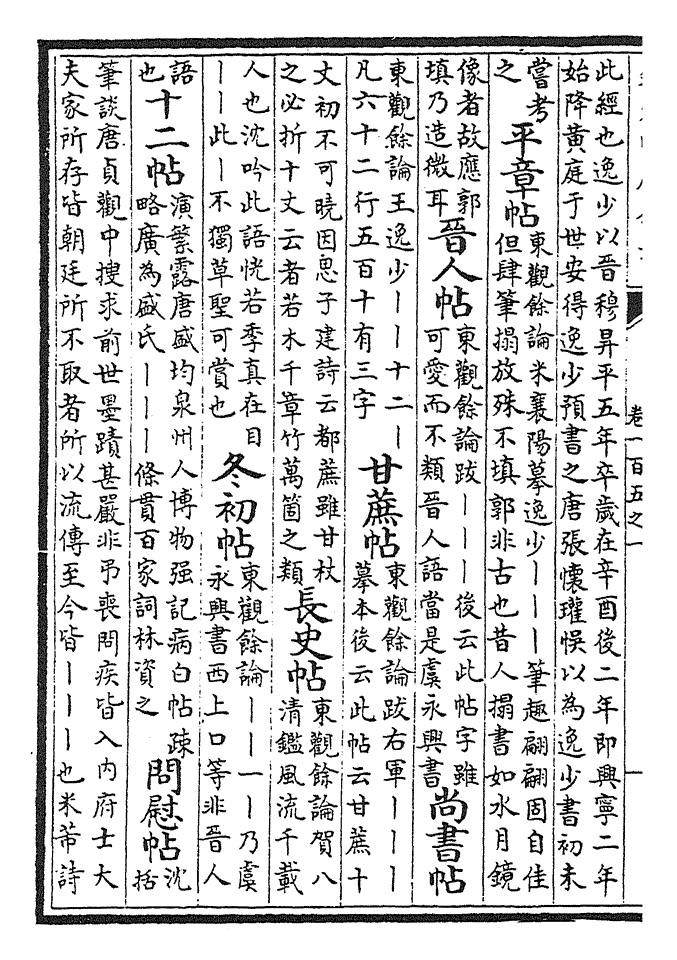 卷一百五之一
一
此經也逸少以晉穆昇平五年卒歲在辛酉後二年即興寧二年
始降黃庭于世安得逸少預書之唐張懷瓘悞以為逸少書初未
嘗考
之
平章帖
東觀餘論米襄陽摹逸少｜｜｜筆趣翩翩固自佳
但肆筆搨放殊不填郭非古也昔人搨書如水月鏡
像者故應郭
填乃造微耳
晉人帖
東觀餘論跋｜｜｜後云此帖字雖
可愛而不類晉人語當是虞永興書
尚書帖
東觀餘論王逸少｜｜十二｜
凡六十二行五百十有三字
甘蔗帖
東觀餘論跋右軍｜｜｜
摹本後云此帖云甘蔗十
丈初不可曉因思子建詩云都蔗雖甘杖
之必折十丈云者若木千章竹萬箇之類
長史帖
東觀餘論賀八
清鑑風流千載
人也沈吟此語恍若季真在目
｜｜此｜不獨草聖可賞也
冬初帖
東觀餘論｜｜一｜乃虞
永興書西上口等非晉人
語
也
十二帖
演繁露唐盛均泉州人博物强記病白帖疎
略廣為盛氏｜｜｜條貫百家詞林資之
問慰帖
沈
括
筆談唐貞觀中搜求前世墨蹟甚嚴非弔喪問疾皆入內府士大
夫家所存皆朝廷所不取者所以流傳至今皆｜｜｜也米芾詩